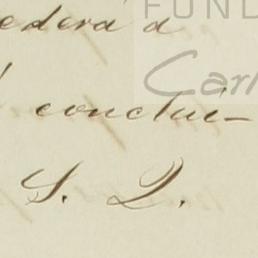 ederá a
FUND
Car
conclui-
S. Q.